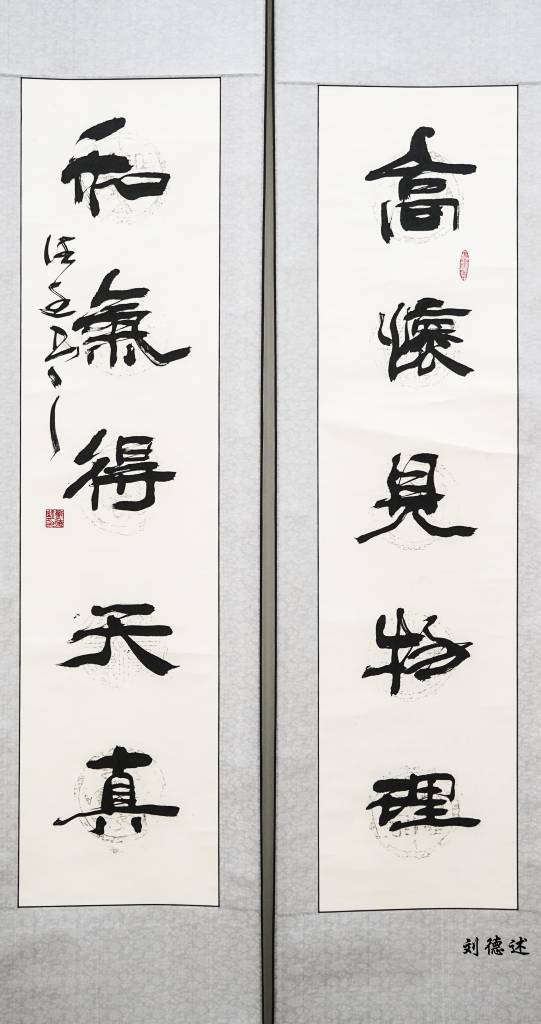 高懷見物理
和氣得天真
刘德述